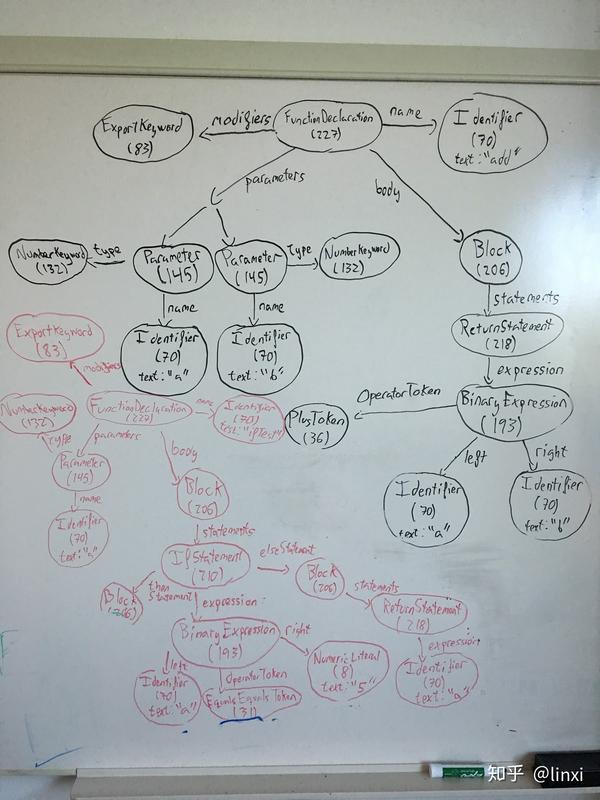 ExportKeyword
(83)
modifiers
FunctionDeclaration
(227)
name
Identifier
(70)
text: "add"
parameters
body
NumberKeyword
(132)
type
Parameter
(145)
Parameter
(145)
type
NumberKeyword
(132)
Block
(206)
name
name
statements
Identifier
(70)
text: "a"
Identifier
(70)
text: "b"
ReturnStatement
(218)
expression
ExportKeyword
(83)
modifiers
OperatorToken
BinaryExpression
(193)
PlusToken
(36)
left
right
Identifier
(70)
text: "a"
Identifier
(70)
text: "b"
NumberKeyword
(132)
FunctionDeclaration
(227)
name
Identifier
(70)
text: "ifTest"
type
parameters
body
Parameter
(145)
name
Identifier
(70)
text: "a"
Block
(206)
statements
IfStatement
(210)
elseStatement
Block
(206)
statements
ReturnStatement
(218)
then
Statement
Block
(206)
expression
expression
BinaryExpression
(193)
right
NumericLiteral
(8)
text: "5"
Identifier
(70)
text: "a"
left
OperatorToken
Identifier
(70)
text: "a"
EqualsEqualsToken
(31)
知乎 @linxi